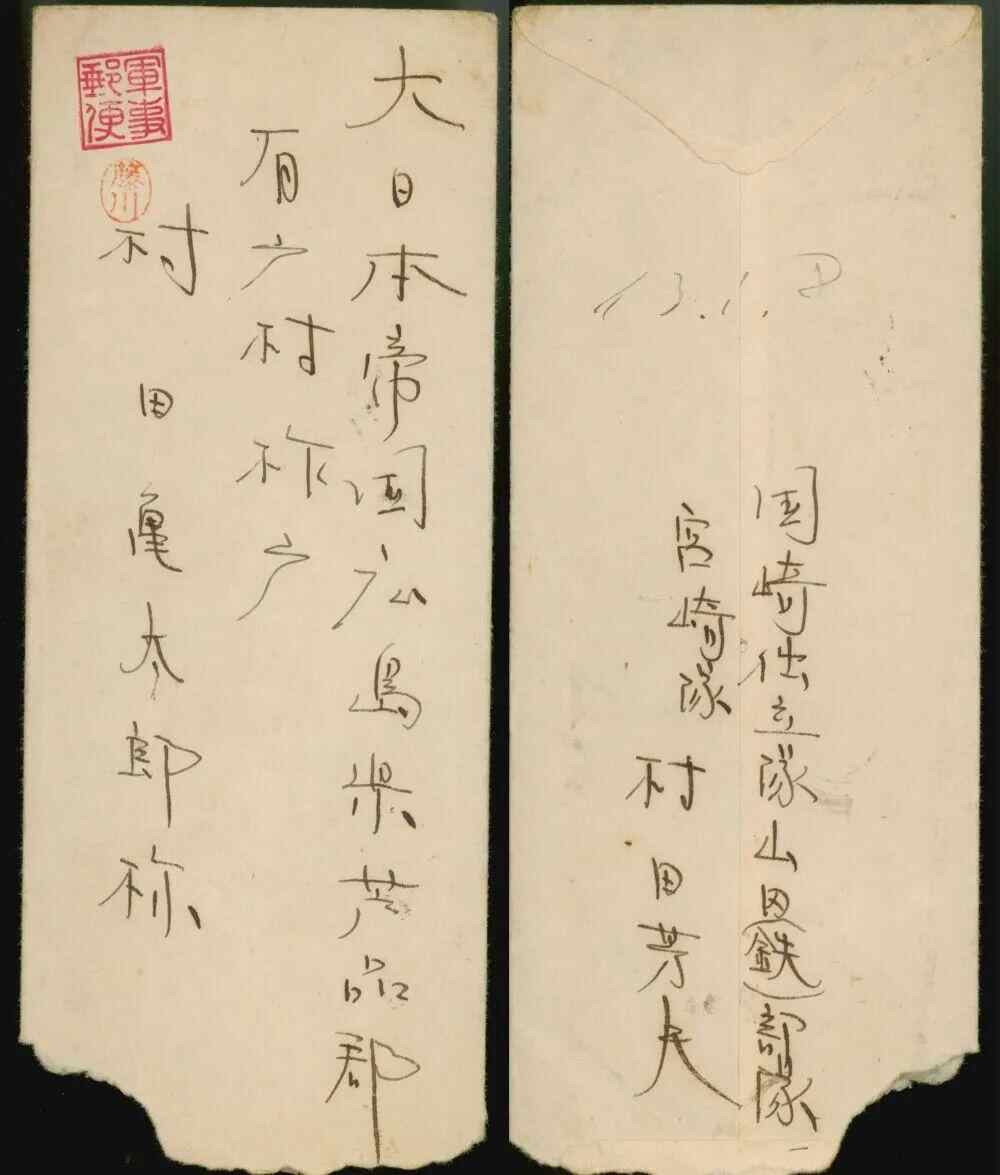 軍事
郵便
藤川
大日本帝国広島県芦品郡
有戸村柞戸
村田亀太郎様
13.1.
国崎佐立隊山田(鉄)部隊
宮崎隊
村田芳夫